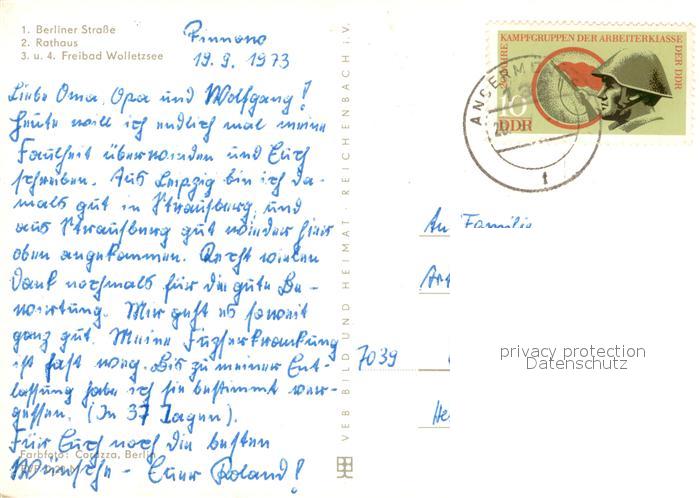 1. Berliner Straße
2. Rathaus
3. u. 4. Freibad Wolletzsee
19.9.1973
Liebe Oma, Opa und Wolfgang!
Heute will ich endlich mal meine
Faulheit überwinden und Euch
schreiben. Aus Leipzig bin ich da-
mals gut in Straußberg und
aus Straußberg gut wieder hier
oben angekommen. Recht vielen
Dank nochmals für die gute Be-
wirtung. Mir geht es soweit
ganz gut. Meine Fußerkrankung
ist fast weg. Bis zu meiner Ent-
lassung habe ich sie bestimmt ver-
gessen. (In 37 Tagen).
Für Euch noch die besten
Wünsche - Euer Roland!
Farbfoto: Corazza, Berlin
VEB BILD UND HEIMAT REICHENBACH i. V.
JAHRE KAMPFGRUPPEN DER ARBEITERKLASSE DER DDR
10
DDR
ANGERM
An Familie
7039
privacy protection
Datenschutz